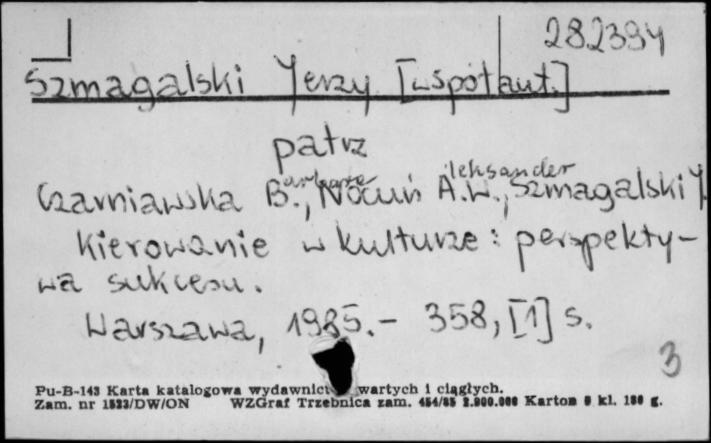 282394
Szmagalski Jerzy [współaut.]
patrz
Czarniawska Barbara, Nocuń A.W., Szmagalski J.
leksander
Kierowanie w kulturze : perspekty-
wa sukcesu.
Warszawa, 1985.- 358, [1] s.
3
Pu-B-143 Karta katalogowa wydawnict wartych i ciągłych.
Zam. nr 1523/DW/ON WZGraf Trzebnica zam. 454/85 2.900.000 Karton kl. 180 g.